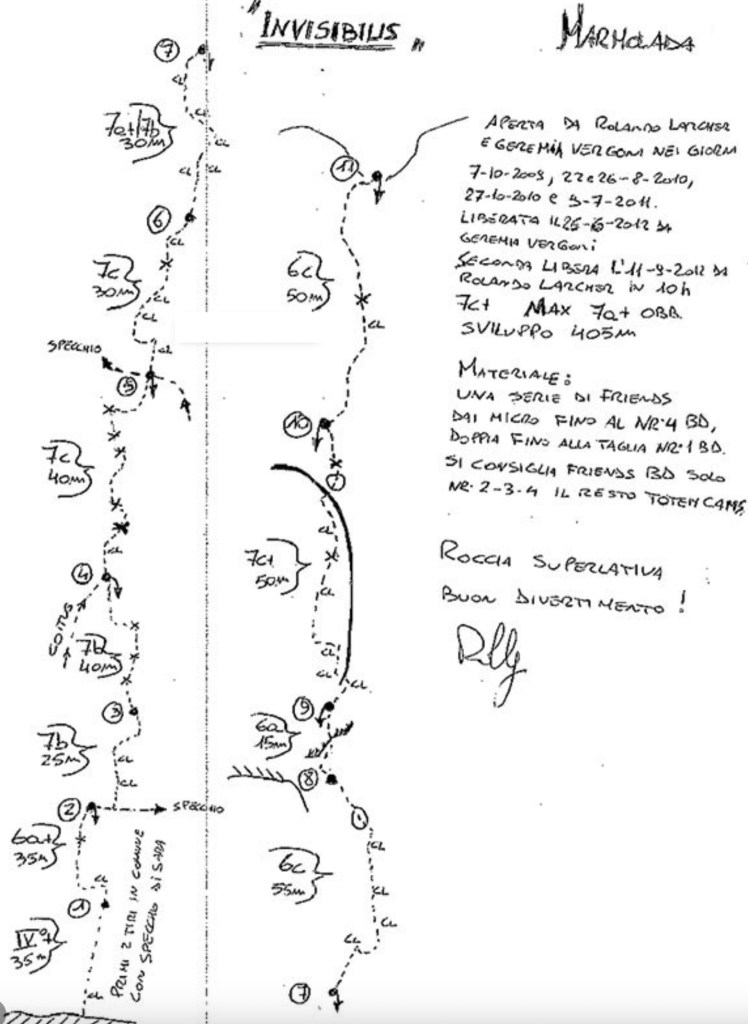 "INVISIBILIS"
MARMOLADA
APERTA DA ROLANDO LARCHER
E GEREMIA VERGONI NEI GIORNI
7-10-2009, 22 e 26-8-2010,
27-10-2010 e 3-7-2011.
LIBERATA IL 26-6-2012 DA
GEREMIA VERGONI
SECONDA LIBERA L'11-9-2012 DA
ROLANDO LARCHER IN 10h
7c+ MAX 7a+ OBB.
SVILUPPO 405m
MATERIALE:
UNA SERIE DI FRIENDS
DAI MICRO FINO AL NR·4 BD,
DOPPIA FINO ALLA TAGLIA NR·1 BD.
SI CONSIGLIA FRIENDS BD SOLO
NR. 2-3-4 IL RESTO TOTEM CAMS.
ROCCIA SUPERLATIVA
BUON DIVERTIMENTO!
Rolly
7
CL
CL
7a+/7b
30m
CL
CL
CL
6
CL
7c
30m
CL
CL
CL
SPECCHIO
5
7c
40m
CL
4
COITUS
7b
40m
3
7b
25m
CL
CL
2
SPECCHIO
6a+
35m
CL
1
IV°+
35m
CL
PRIMI 2 TIRI IN COMUNE
CON SPECCHIO DI SARA
11
6c
50m
CL
10
CL
7c+
50m
CL
CL
CL
CL
9
6a
15m
8
6c
55m
CL
CL
CL
CL
7